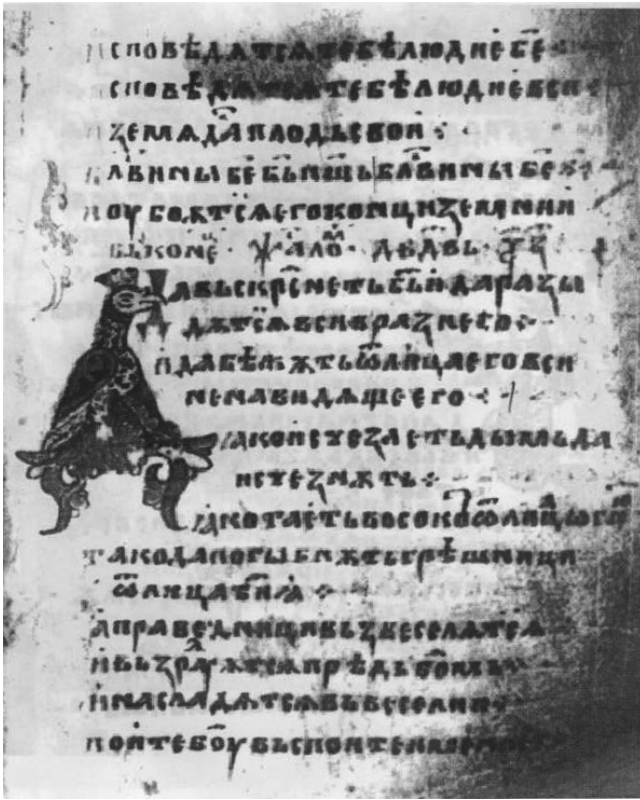 исповѣдѧтсѧ тебѣ людиѥ б҃е
исповѣдѧтсѧ тебѣ людиѥ вси
ꙁемлѧ дас̑ плодъ свои
бл҃ви мы бе б҃ь нш҃ь бл҃ви мы бе
и оубоѭтсѧ его конци ꙁемлии
въ коне ц · ѱало м · дв҃дъ · ѯ҃ꙁ
да въскр҃снеть б҃ь и да раꙁы
дѫтсѧ вси враꙁи его
и да бѣжѫть ѿ лица его вси
ненавидѧщеи его
ꙗко исчеꙁаеть дымъ да
исчеꙁнѫть
ꙗко таеть воскъ ѿ лица ог҃нѣ
тако да погыбнѫть грѣшници
ѿ лица б҃иꙗ
а праведници въꙁвеселѧтсѧ
и въꙁрадꙋѭтсѧ прѣдъ б҃омь
и насладѧтсѧ въ веселии
поите б҃оу въспоите имени